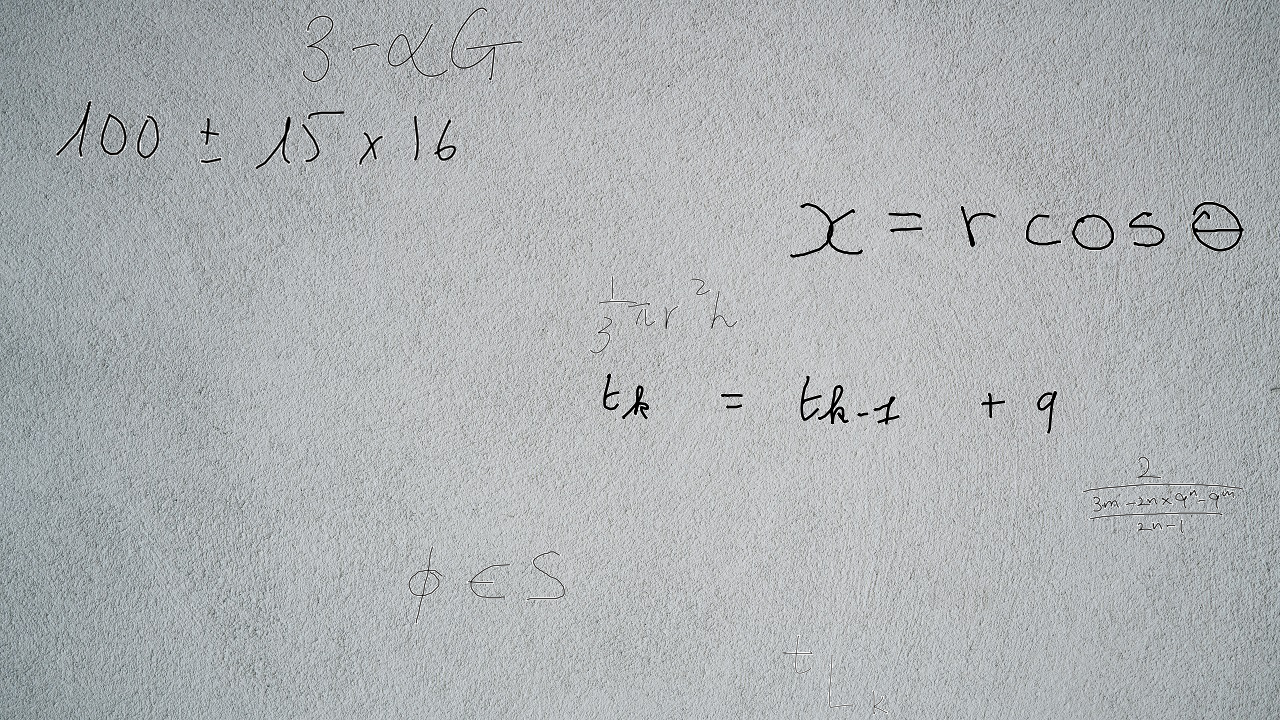 3 - αG
100 ± 15 x 16
x = r cos θ
\frac{1}{3} π r^2 h
t_k = t_{k-1} + q
\frac{2}{\frac{3m - 2n x q^n - q^m}{2n - 1}}
ϕ ∈ S
t_{L_k}